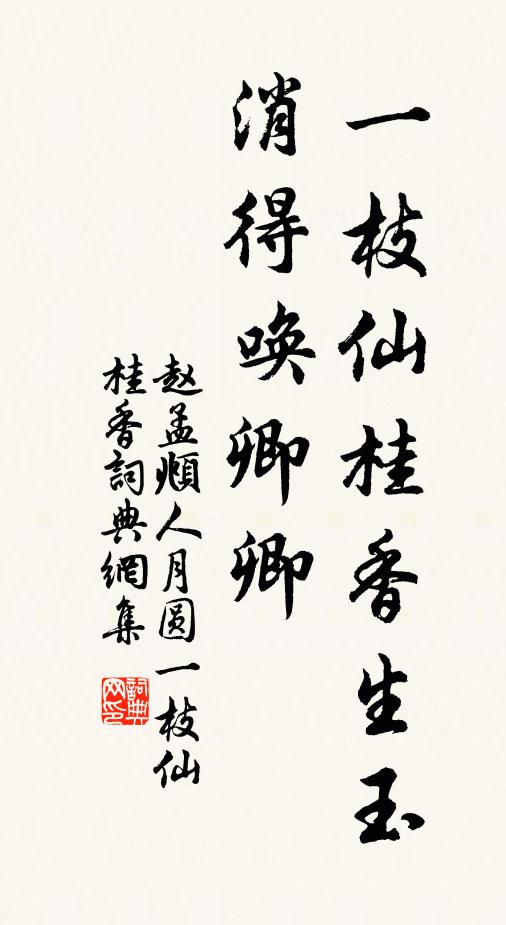 一枝仙桂香生玉
消得唤卿卿
赵孟頫人月圆一枝仙
桂香詞典網集
詞典
网印